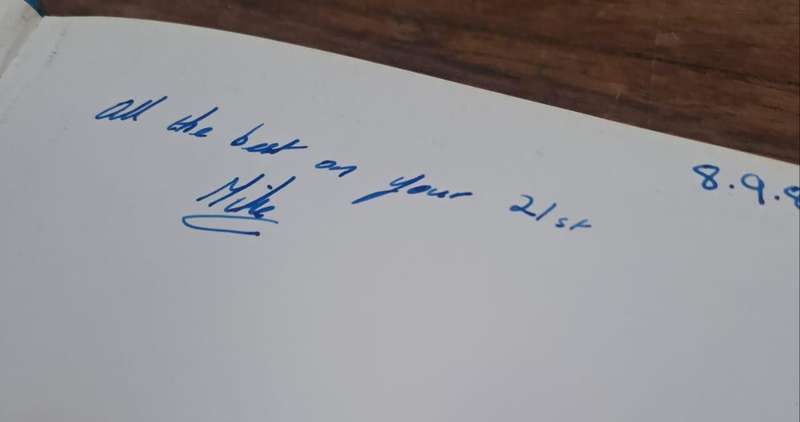 All the best on your 21st
Mike
8.9.8